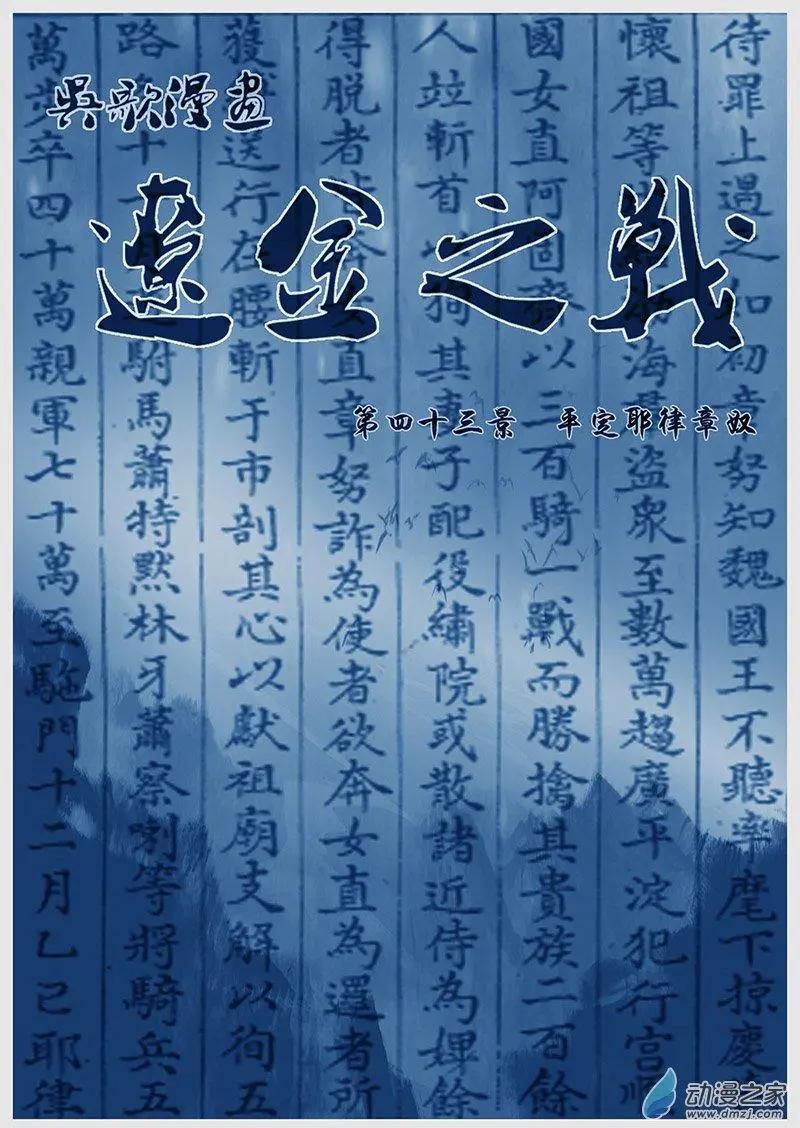 吳歌漫畫
遼金之戰
第四十三景 平定耶律章奴
待罪上遇之如初章努知魏國王不聽率麾下掠慶
懷祖等海盜眾至數萬趨廣平淀犯行宮順
國女直阿固齊以三百騎一戰而勝擒其貴族二百餘
人竝斬首以徇其妻子配役繡院或散諸近侍為婢餘
得脫者皆奔女直章努詐為使者欲奔女直為邏者所
獲送行在腰斬于市剖其心以獻祖廟支解以徇五
路駙馬蕭特默林牙蕭察喇等將騎兵五
萬步卒四十萬親軍七十萬至駞門十二月乙己耶律
动漫之家
www.dmzj.com